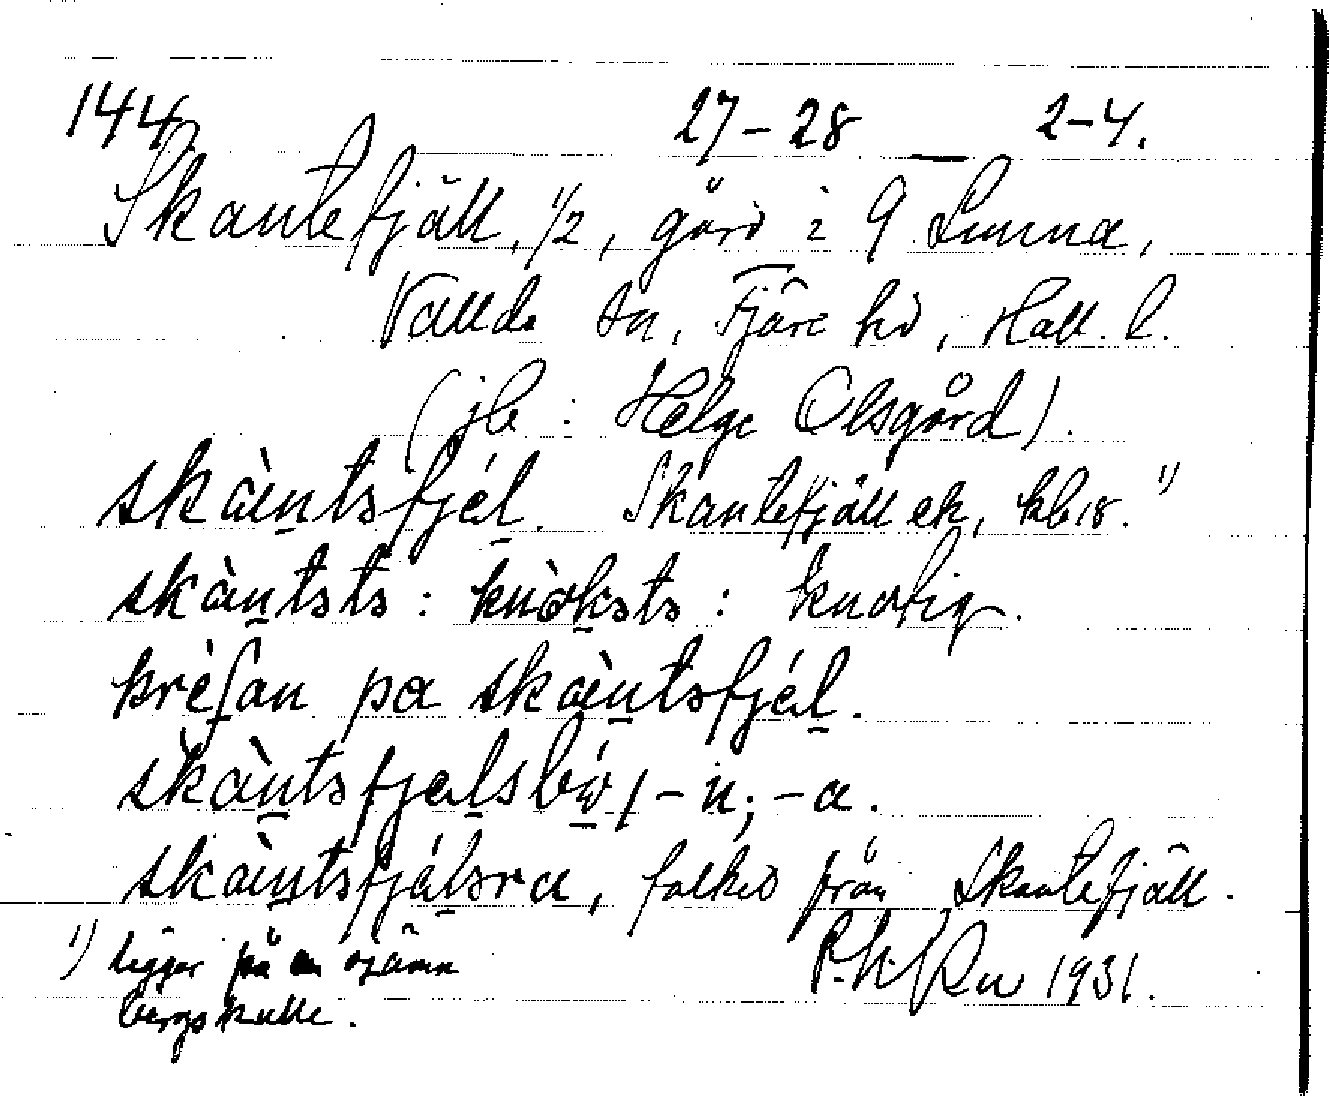 144 27–28 — 2–4.
Skantefjäll, 1/2, gård i 9 Lunna,
Vallda sn, Fjäre hd, Hall. l.
(jb: Helge Olsgård).
skàntsfjél. Skantefjäll ek, kb 18. 1)
skàntsts: knòksts: knotig.
krèſan pa skàntsfjél.
skàntsfjælsbó, -n; -a.
skàntsfjálsra, folket från Skantefjäll.
1) ligger på en ojämn
bergskulle. 1931.